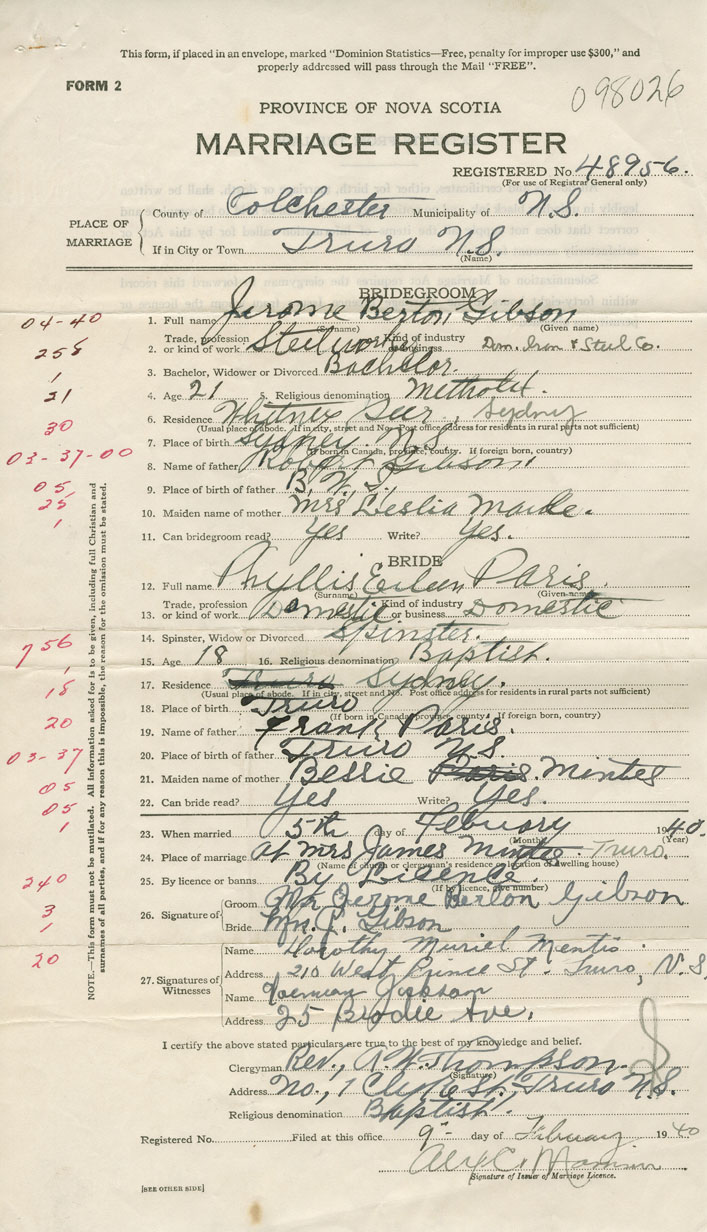 This form, if placed in an envelope, marked "Dominion Statistics—Free, penalty for improper use $300," and
properly addressed will pass through the Mail "FREE".
FORM 2
098026
PROVINCE OF NOVA SCOTIA
MARRIAGE REGISTER
REGISTERED No. 48956.
(For use of Registrar General only)
PLACE OF MARRIAGE
County of Colchester Municipality of N.S.
If in City or Town Truro N.S.
(Name)
BRIDEGROOM
04-40 1. Full name Jerome Berton Gibson
(Surname) (Given name)
258 2. Trade, profession or kind of work Steelworker Kind of industry or business Dom. Iron & Steel Co.
1 3. Bachelor, Widower or Divorced Bachelor.
21 4. Age 21 5. Religious denomination
30 6. Residence Whitney Pier, Sydney
(Usual place of abode. If in city, street and No. Post office address for residents in rural parts not sufficient)
03-37-00 7. Place of birth Sydney N.S.
(If born in Canada, province, county. If foreign born, country)
8. Name of father Gibson
05 9. Place of birth of father B.W.I.
25 10. Maiden name of mother Mrs Leslia
1 11. Can bridegroom read? Yes Write? Yes.
BRIDE
12. Full name Phyllis Eileen Paris.
(Surname) (Given name)
13. Trade, profession or kind of work Domestic Kind of industry or business Domestic
756 14. Spinster, Widow or Divorced Spinster.
1 15. Age 18 16. Religious denomination Baptist.
18 17. Residence Truro Sydney.
(Usual place of abode. If in city, street and No. Post office address for residents in rural parts not sufficient)
20 18. Place of birth Truro
(If born in Canada province, county. If foreign born, country)
19. Name of father Frank Paris.
03-37 20. Place of birth of father Truro N.S.
05 21. Maiden name of mother Bessie Paris. Mintes
05 22. Can bride read? Yes Write? Yes.
1 23. When married 5th day of Febuary 1940.
(Month) (Year)
24. Place of marriage At Mrs James Mintes Truro.
(Name of church or clergyman's residence or location of dwelling house)
240 25. By licence or banns By Lisence.
(If by licence, give number)
3 26. Signature of Groom Mr Jerome Berton Gibson
1 Bride Mrs. J. Gibson
20 27. Signatures of Witnesses
Name Dorothy Muriel Mentis.
Address 210 West Prince St. Truro, N.S.
Name
Address 25 Brodie Ave.
NOTE.—This form must not be mutilated. All information asked for is to be given, including full Christian and
surnames of all parties, and if for any reason this is impossible, the reason for the omission must be stated.
I certify the above stated particulars are true to the best of my knowledge and belief.
Clergyman Rev., A.W. Thompson.
(Signature)
Address No., 1 Clyde St., Truro N.S.
Religious denomination Baptist.
Registered No. Filed at this office 9 - day of February 1940
Signature of Issuer of Marriage Licence.
[SEE OTHER SIDE]